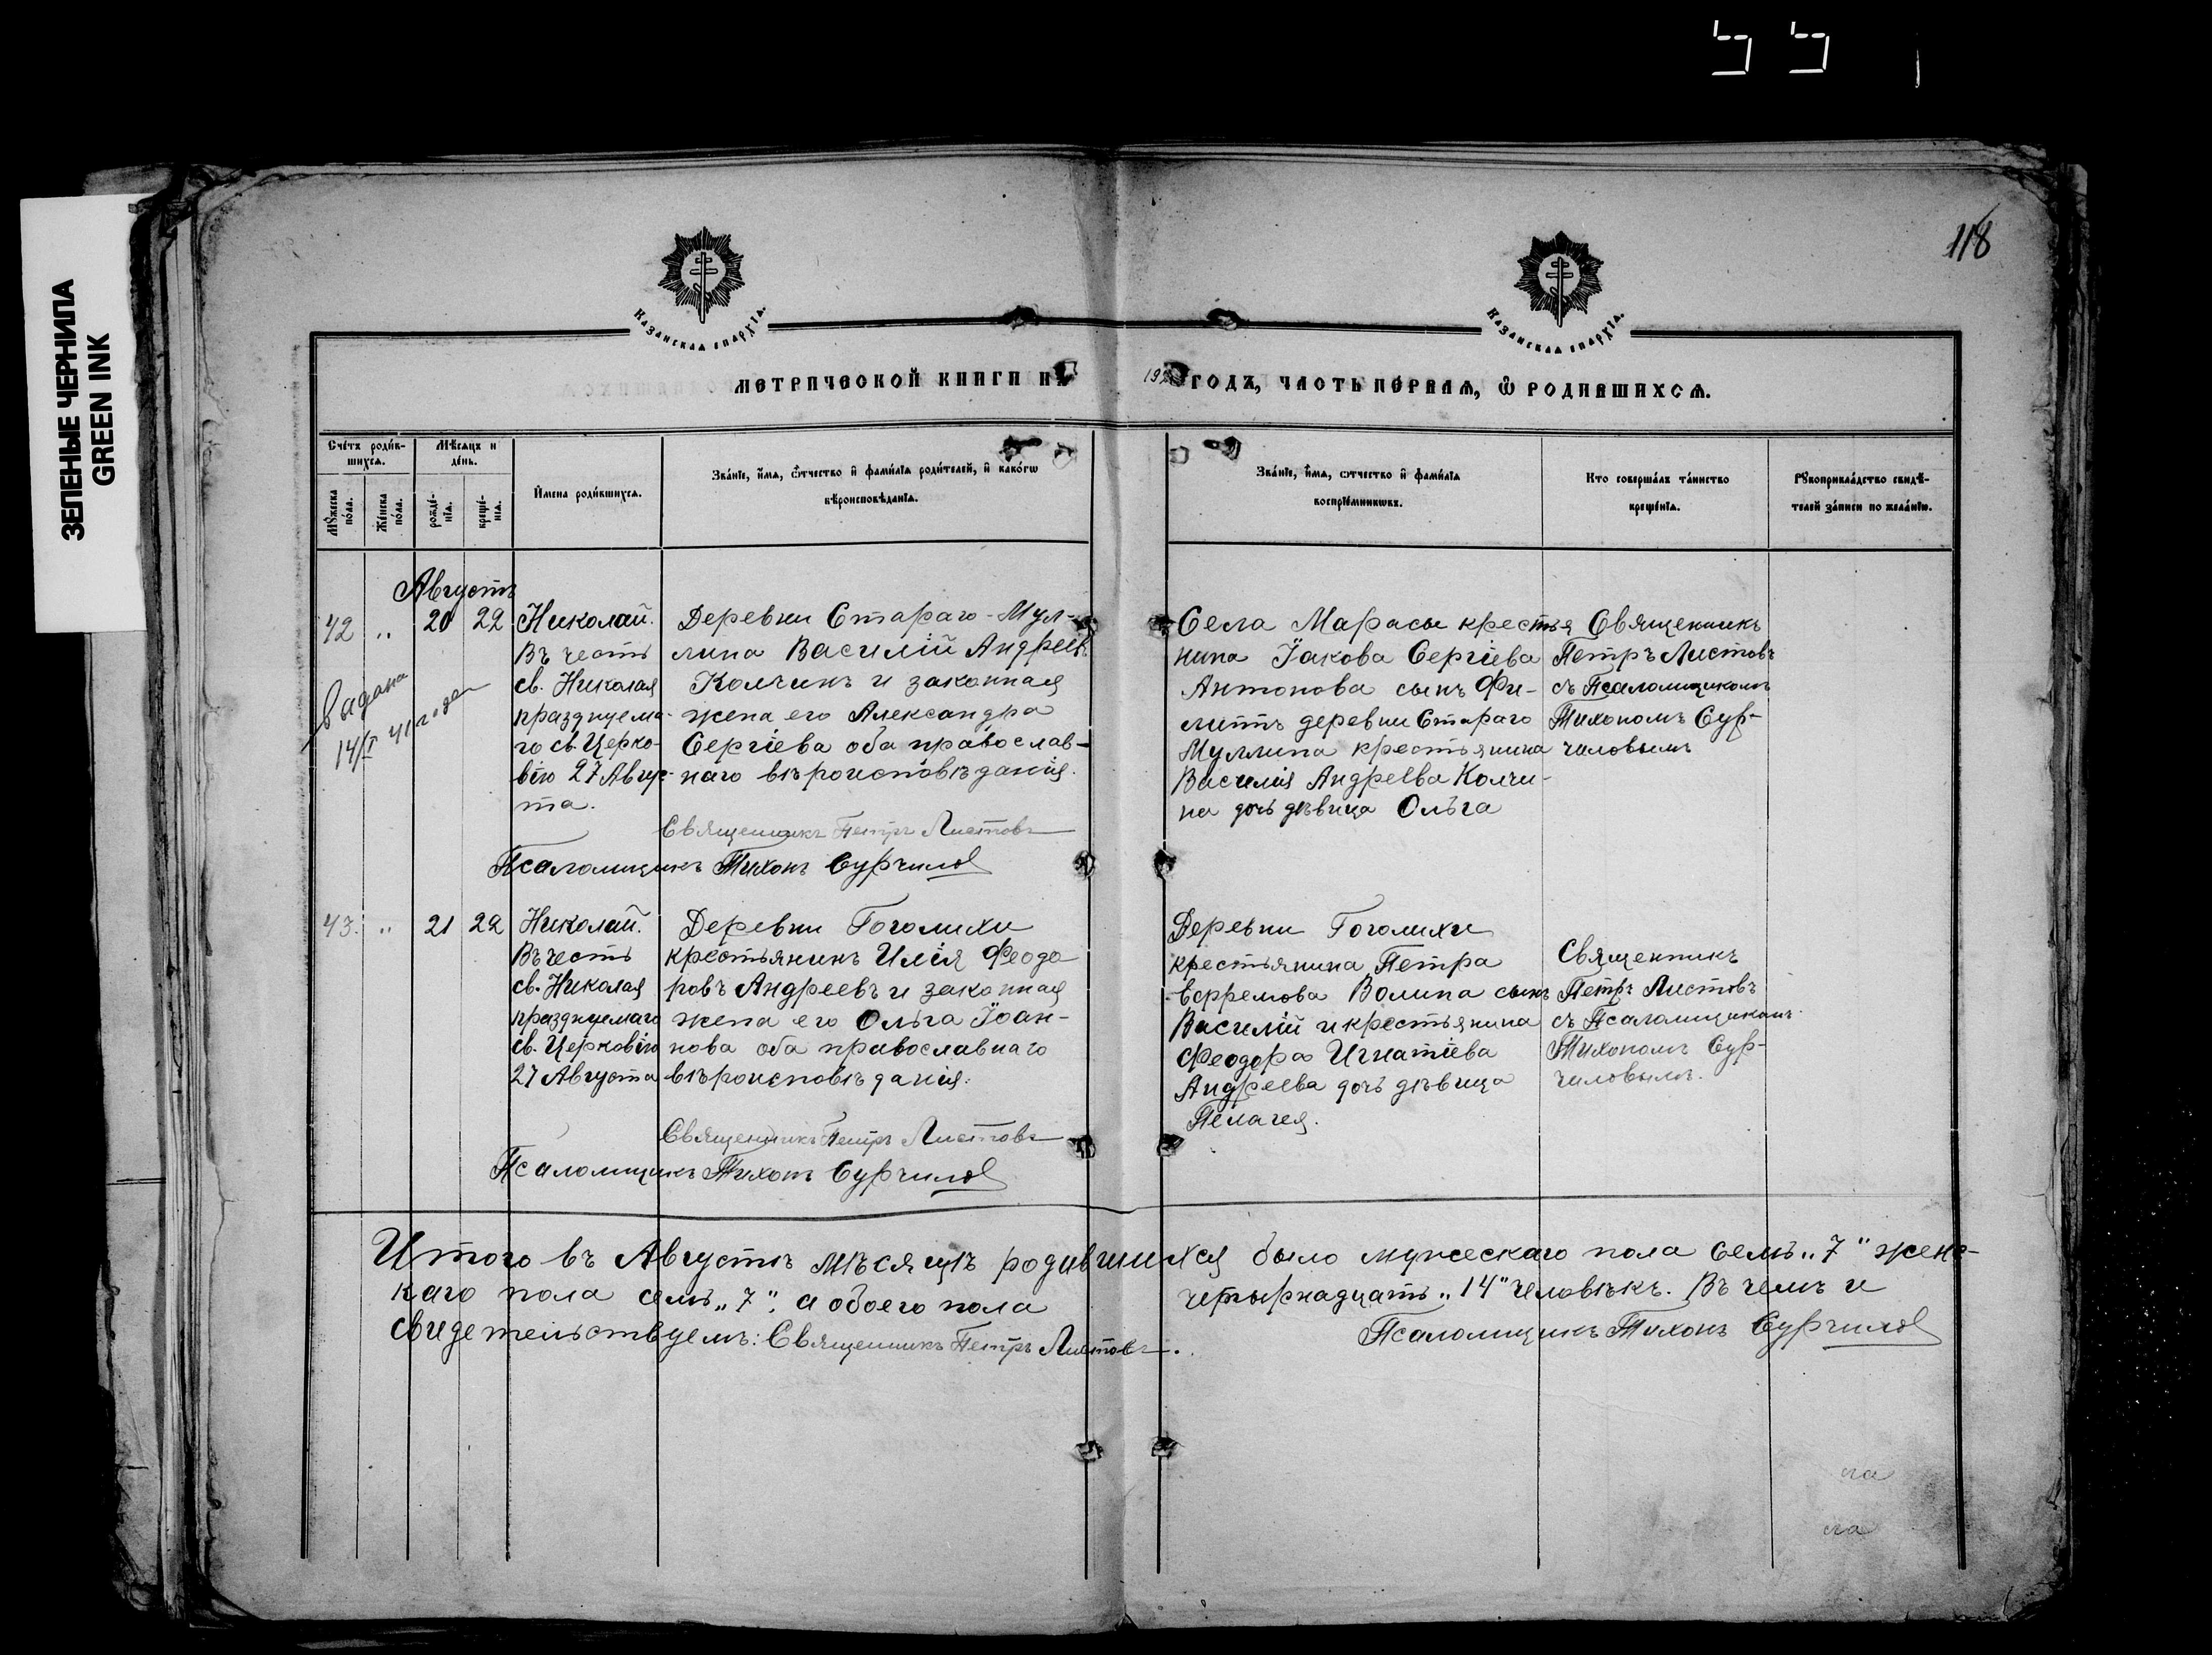 118
ЗЕЛЕНЫЕ ЧЕРНИЛА
GREEN INK
Казанская епархїя.
Казанская епархїя.
МЕТРИЧЕСКОЙ КНИГИ НА 19
ГОДЪ, ЧАСТЬ ПЕРВАЯ, Ѿ РОДИВШИХСѦ.
Сче́тъ роди́в-
шихся.
Мѣ́сяцъ и
де́нь.
Му́жеска
по́ла.
Же́нска
по́ла.
рожде́-
нїя.
креще́-
нїя.
И҆мена роди́вшихся.
Зва́нїе, и҆́мя, ѻ҆́тчество и҆ фами́лїя роди́телей, и҆ како́гѡ
вѣроисповѣ́данїя.
Зва́нїе, и҆́мя, ѻтчество и҆ фами́лїя
воспрїе́мникѡвъ.
Кто соверша́лъ та́инство
креще́нїя.
Рꙋкоприкла́дство свидѣ́-
телей за́писи по жела́нїю.
Августъ
42 „ 20 22
Выдана
14/I 41 года
Николай.
Въ честь
св. Николая
празднуема-
го св. Церко-
вію 27 Авгус-
та.
Деревни Стараго-Мул-
лина Василій Андреевъ
Колчинъ и законная
жена его Александра
Сергіева оба православ-
наго вѣроисповѣданія.
Священникъ Петръ Листовъ
Псаломщикъ Тихонъ Сурчилов
Села Марасы крестья
нина Іакова Сергіева
Антонова сынъ Фи-
липпъ деревни Стараго
Муллина крестьянина
Василія Андреева Колчи-
на дочь дѣвица Ольга
Священникъ
Петръ Листовъ
съ Псаломщикомъ
Тихономъ Сур-
чиловымъ
43. „ 21 22
Николай.
Въ честь
св. Николая
празднуемаго
св. Церковію
27 Августа
Деревни Гоголихи
крестьянинъ Илія Феодо
ровъ Андреевъ и законная
жена его Ольга Іоан-
нова оба православнаго
вѣроисповѣданія.
Священникъ Петръ Листовъ
Псаломщикъ Тихонъ Сурчилов
Деревни Гоголихи
крестьянина Петра
Ефремова Волина сынъ
Василій и крестьянина
Феодора Игнатіева
Андреева дочь дѣвица
Пелагея.
Священникъ
Петръ Листовъ
съ Псаломщикомъ
Тихономъ Сур-
чиловымъ.
Итого въ Августѣ мѣсяцѣ родившихся было мужескаго пола семь „7" женс-
каго пола семь „7", а обоего пола четырнадцать „14" человѣкъ. Въ чемъ и
свидетельствуемъ: Священникъ Петръ Листовъ. Псаломщикъ Тихонъ Сурчилов